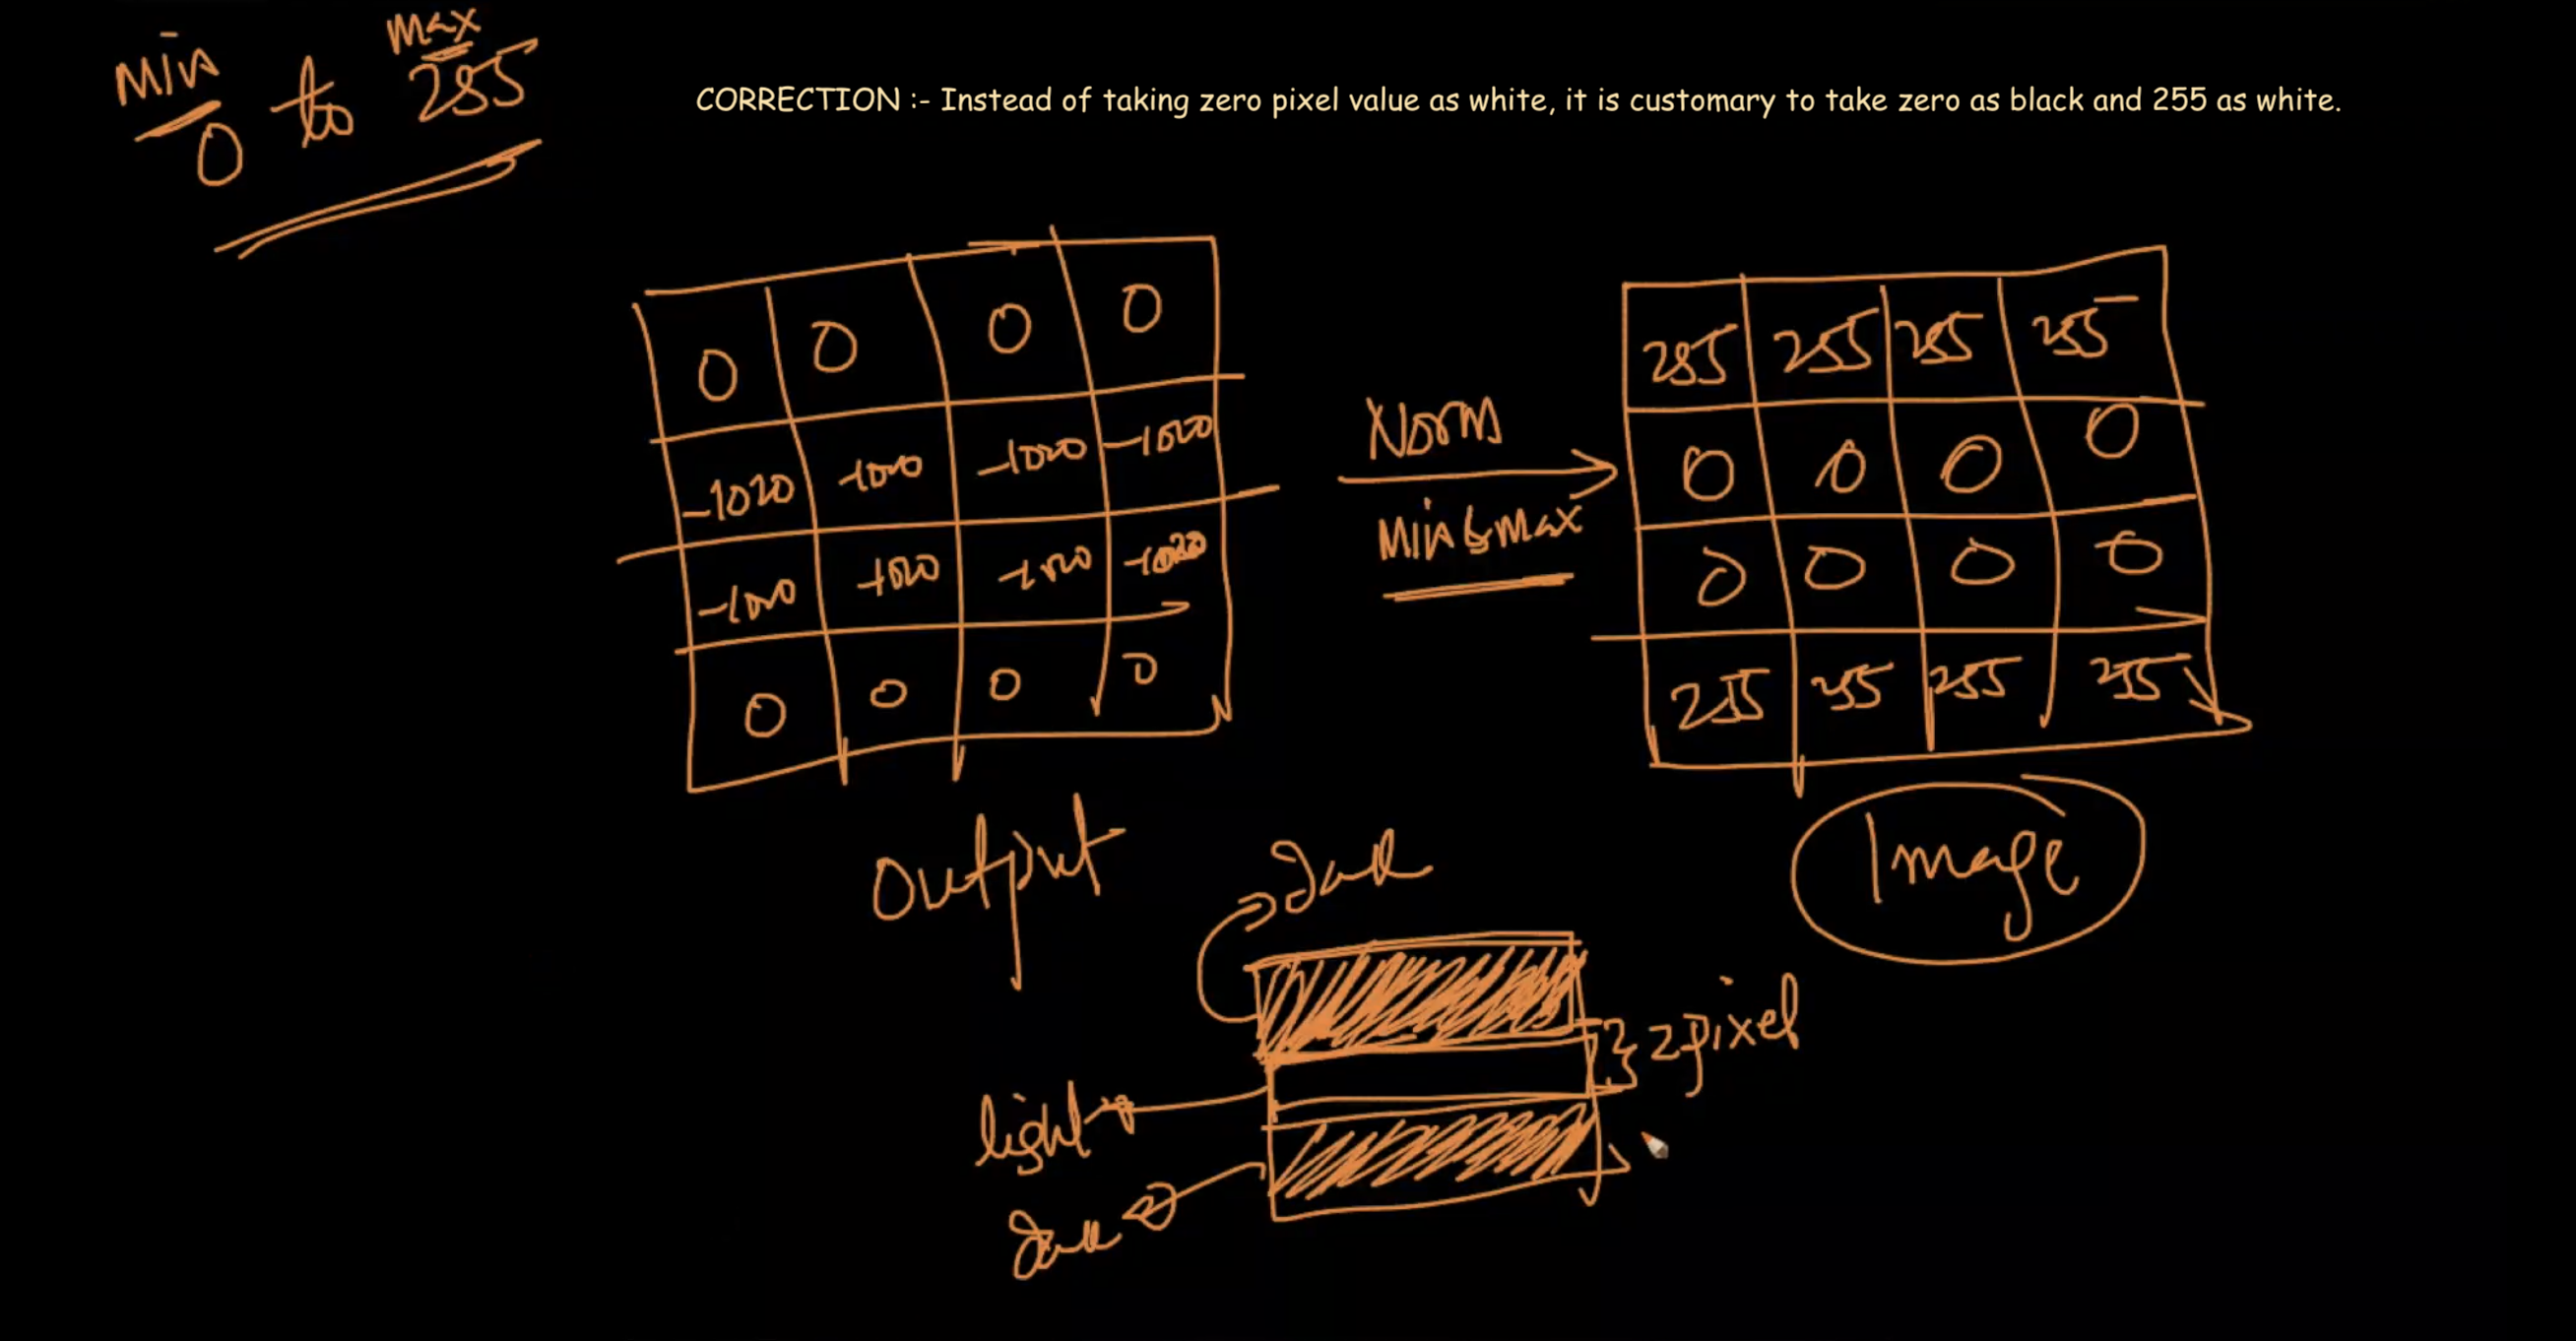 Min
Max
0 to 255
CORRECTION :- Instead of taking zero pixel value as white, it is customary to take zero as black and 255 as white.
0 0 0 0
-1020 -1020 -1020 -1020
-1020 -1020 -1020 -1020
0 0 0 0
Output
Norm
Min & Max
255 255 255 255
0 0 0 0
0 0 0 0
255 255 255 255
Image
Dark
2 pixel
light
Dark